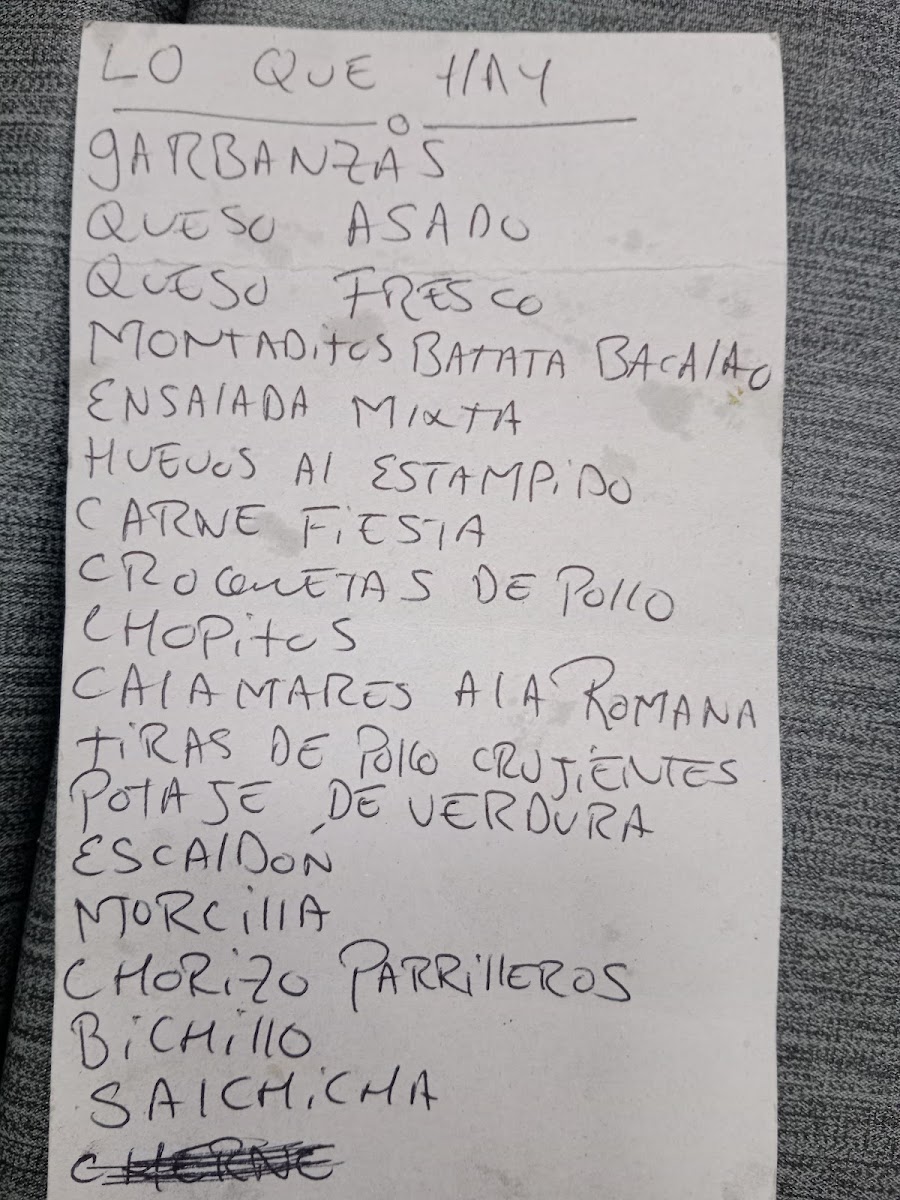 LO QUE HAY
GARBANZAS
QUESO ASADO
QUESO FRESCO
MONTADitOS BATATA BACAlAO
ENSAlADA MIXTA
HUEVOS Al ESTAMPiDO
CARNE FiESTA
CROQUETAS DE POllO
CHOPitOS
CAlAMARES A lA ROMANA
tiRAS DE POllO CRUJiENTES
POTAJE DE VERDURA
ESCAlDÓN
MORCillA
CHORiZO PARRillEROS
BiCHillO
SAlCHiCHA
CHERNE